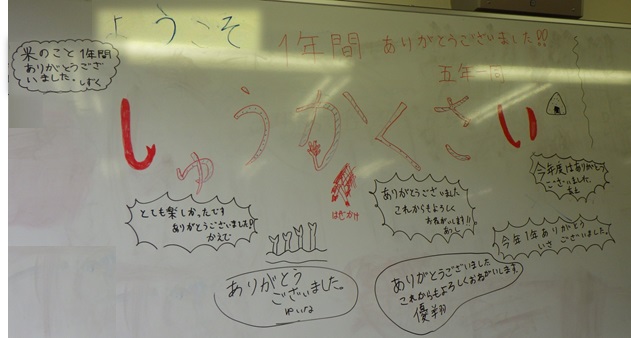 ようこそ
1年間 ありがとうございました!!
五年一同
米のこと1年間
ありがとうござ
いました。
しずく
しゅうかくさい
はざかけ
とても楽しかったです
ありがとうございました!!
かえで
ありがとうございました
これからもよろしく
おねがいします!!
今年度はありがとう
ございました
今年1年ありがとう
ございました。
ありがとう
ございました。
ゆいな
ありがとうございました
これからもよろしくおねがいします
優翔